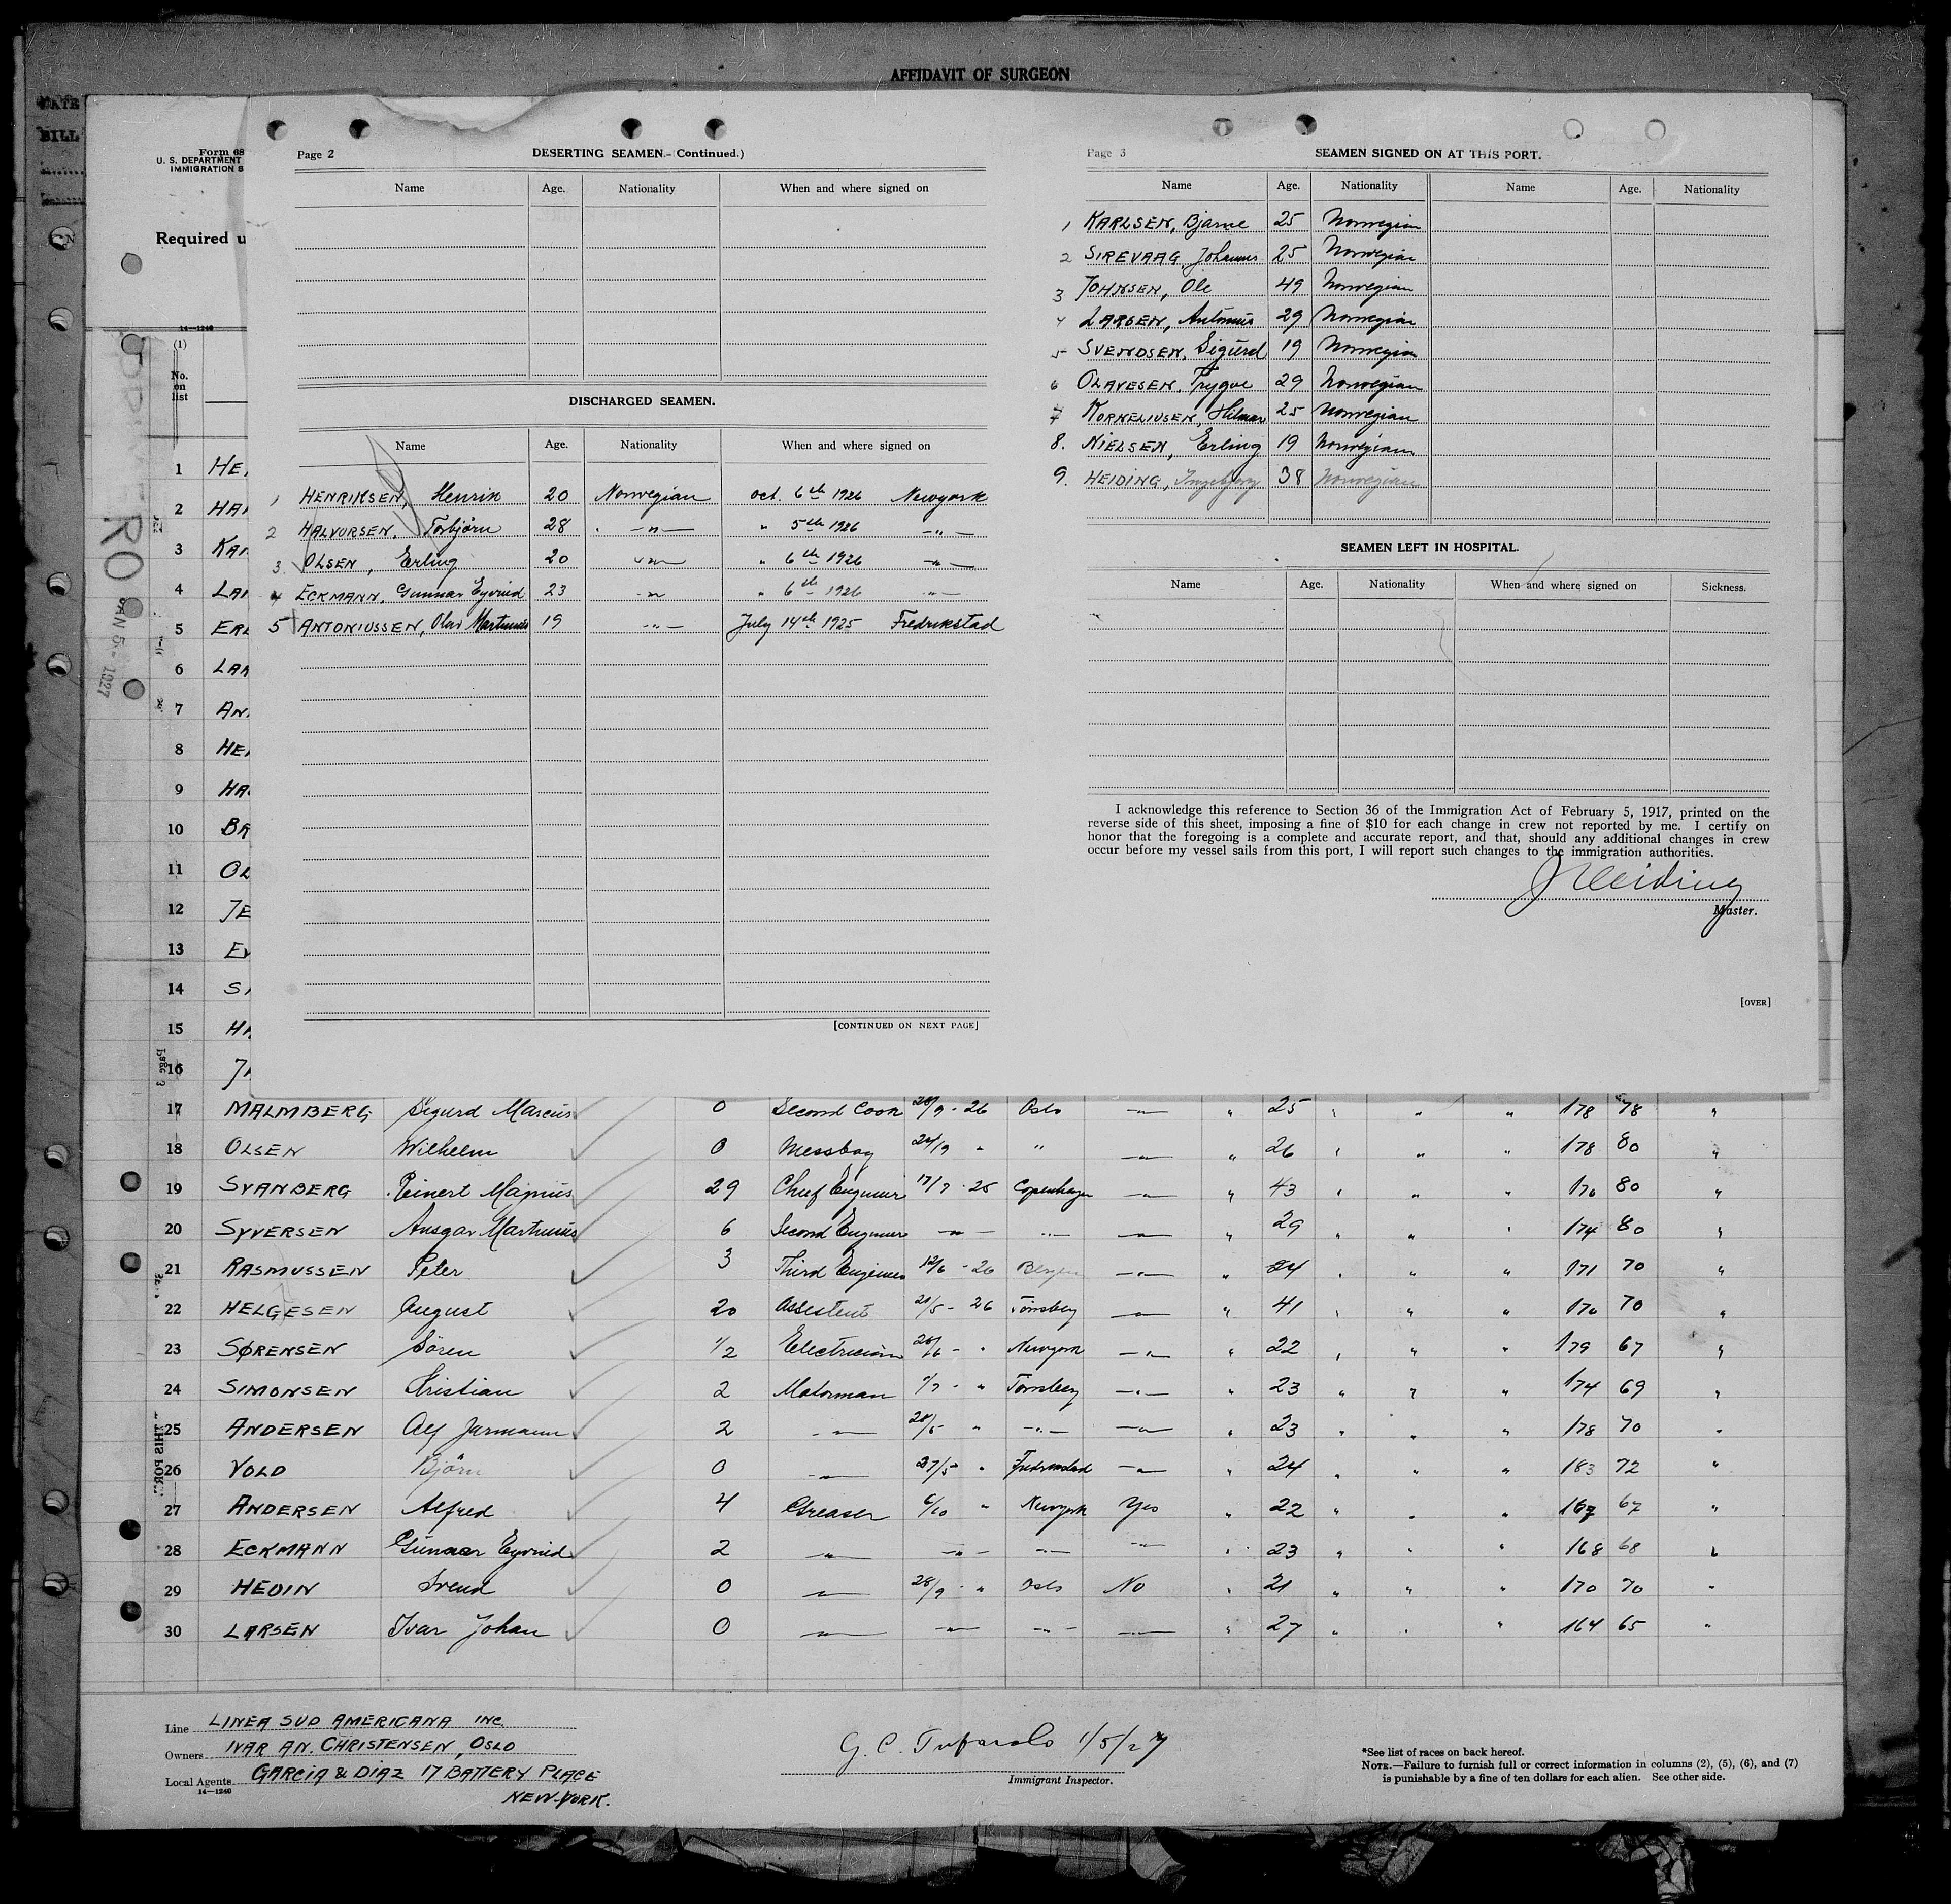 AFFIDAVIT OF SURGEON
Form 68
U. S. DEPARTMENT
IMMIGRATION S
Required u
14—1240
(1)
No. on list
Page 2
DESERTING SEAMEN.—(Continued.)
Name Age. Nationality When and where signed on
DISCHARGED SEAMEN.
Name Age. Nationality When and where signed on
1 HENRIKSEN, Henrik 20 Norwegian oct. 6th 1926 Newyork
2 HALVORSEN, Torbjørn 28 —"— " 5th 1926 —"—
3 OLSEN, Erling 20 —"— " 6th 1926 —"—
4 ECKMANN, Gunnar Eyvind 23 —"— " 6th 1926 —"—
5 ANTONIUSSEN, Olav Martinus 19 —"— July 14th 1925 Fredrikstad
[CONTINUED ON NEXT PAGE]
Page 3
SEAMEN SIGNED ON AT THIS PORT.
Name Age. Nationality Name Age. Nationality
1 KARLSEN, Bjarne 25 Norwegian
2 SIREVAAG, Johannes 25 Norwegian
3 JOHNSEN, Ole 49 Norwegian
4 LARSEN, Antonius 29 Norwegian
5 SVENDSEN, Sigurd 19 Norwegian
6 OLAVESEN, Trygve 29 Norwegian
7 KORNELIUSEN, Hilmar 25 Norwegian
8. NIELSEN, Erling 19 Norwegian
9. HEIDING, Ingeborg 38 Norwegian
SEAMEN LEFT IN HOSPITAL.
Name Age. Nationality When and where signed on Sickness.
I acknowledge this reference to Section 36 of the Immigration Act of February 5, 1917, printed on the
reverse side of this sheet, imposing a fine of $10 for each change in crew not reported by me. I certify on
honor that the foregoing is a complete and accurate report, and that, should any additional changes in crew
occur before my vessel sails from this port, I will report such changes to the immigration authorities.
J Heiding
Master.
[OVER]
JAN 5 - 1927
1 HE
2 HA
3 KA
4 LA
5 ERL
6 LAR
7 AN
8 HE
9 HA
10 BA
11 OL
12 JE
13 E
14 S
15 H
16 J
17 MALMBERG Sigurd Marcus 0 Second Cook 28/9 - 26 Oslo —"— " 25 " " " 178 78 "
18 OLSEN Wilhelm 0 Messboy 24/9 " " —"— " 26 " " " 178 80 "
19 SVANBERG Reinert Magnus 29 Chief Engineer 17/7 - 25 Copenhagen —"— " 43 " " " 170 80 "
20 SYVERSEN Ansgar Martinius 6 Second Engineer —"— —"— —"— " 29 " " " 174 80 "
21 RASMUSSEN Peter 3 Third Engineer 12/6 - 26 Bergen —"— " 24 " " " 171 70 "
22 HELGESEN August 20 Assistent 20/5 - 26 Tönsberg —"— " 41 " " " 170 70 "
23 SØRENSEN Sören 1/2 Electrician 26/6 - " Newyork —"— " 22 " " " 179 67 "
24 SIMONSEN Kristian 2 Motorman 1/7 - " Tönsberg —"— " 23 " " " 174 69 "
25 ANDERSEN Alf Jarmann 2 —"— 20/5 " —"— —"— " 23 " " " 178 70 "
26 VOLD Björn 0 —"— 27/5 " Fredrikstad —"— " 24 " " " 183 72 "
27 ANDERSEN Alfred 4 Greaser 6/10 " Newyork Yes " 22 " " " 167 67 "
28 ECKMANN Gunnar Eyvind 2 —"— —"— —"— —"— " 23 " " " 168 68 "
29 HEDIN Svend 0 —"— 28/9 - " Oslo No " 21 " " " 170 70 "
30 LARSEN Ivar Johan 0 —"— —"— —"— —"— " 27 " " " 164 65 "
Line LINEA SUD AMERICANA INC.
Owners IVAR AN. CHRISTENSEN, OSLO
Local Agents GARCIA & DIAZ 17 BATTERY PLACE
14—1240
NEW-YORK.
G. C. Tufarolo 1/5/27
Immigrant Inspector.
*See list of races on back hereof.
NOTE.—Failure to furnish full or correct information in columns (2), (5), (6), and (7)
is punishable by a fine of ten dollars for each alien. See other side.